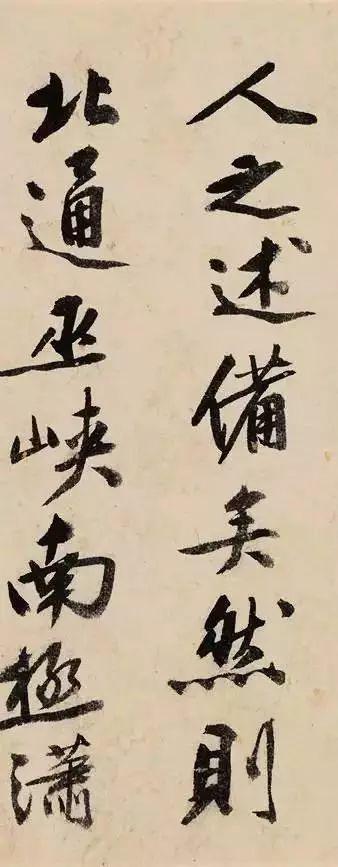 人之述備矣然則
北通巫峽南極瀟